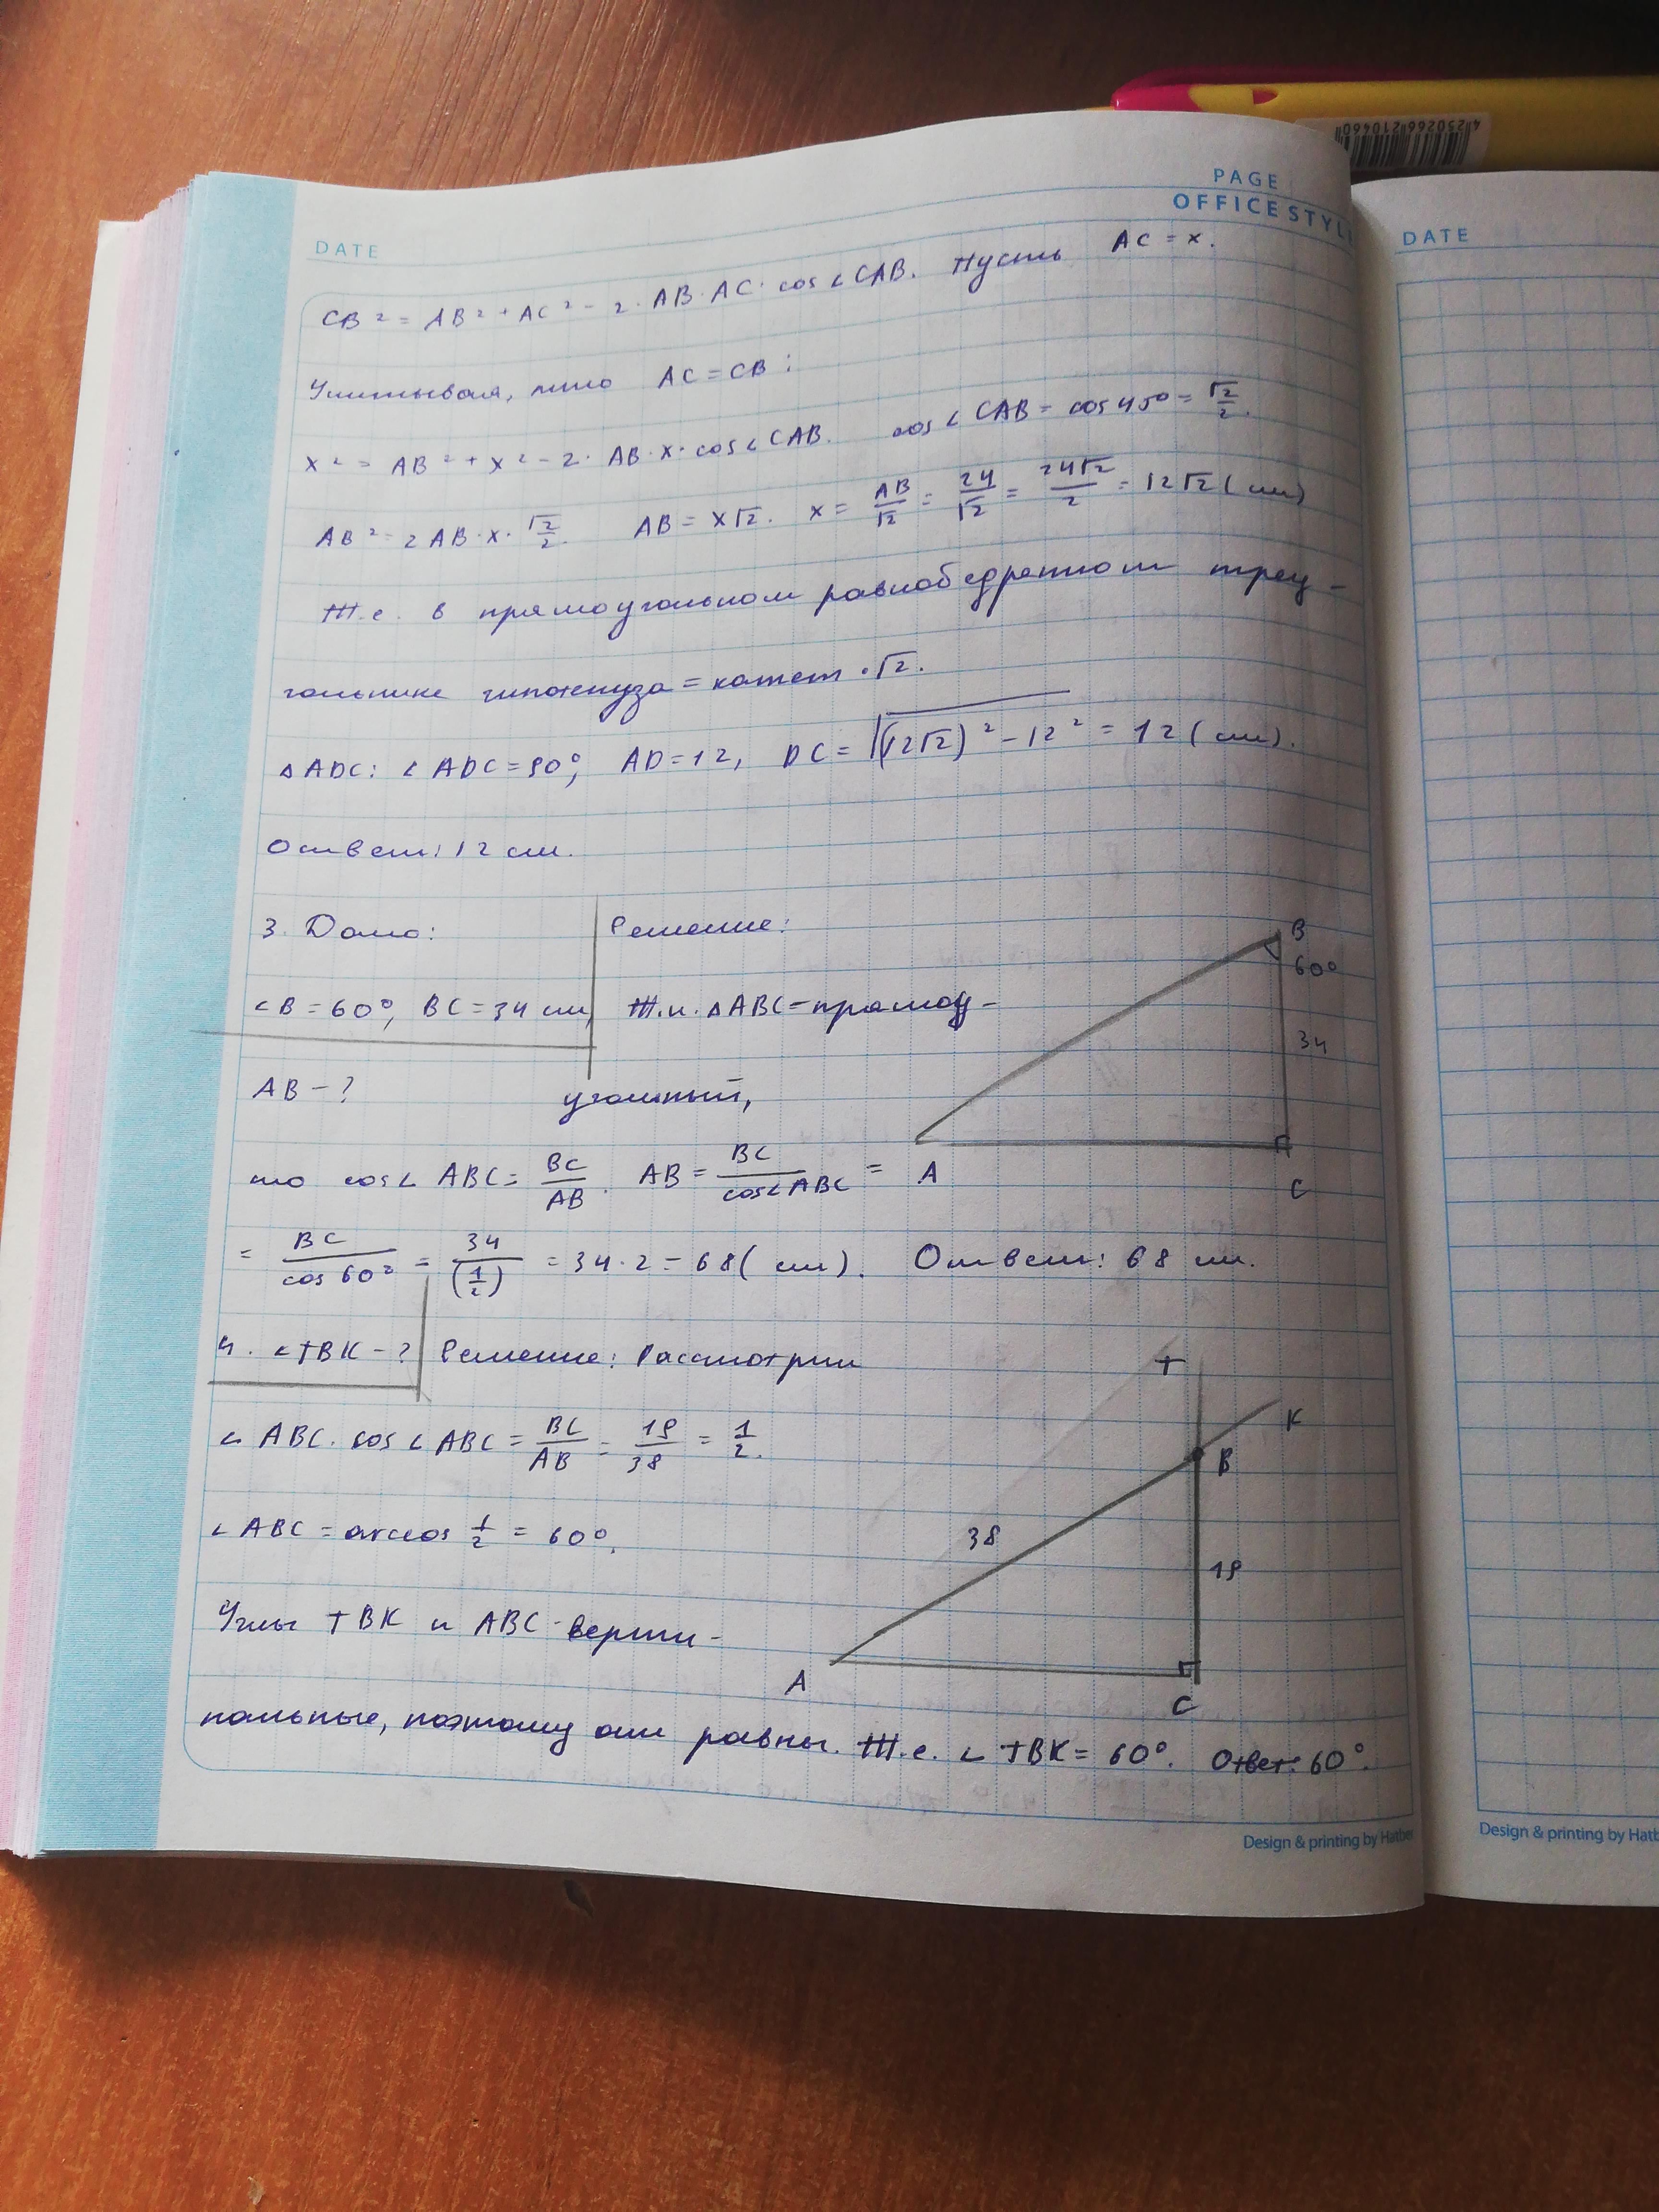 4250266210460
PAGE
OFFICE STYL
DATE
DATE
CB² = AB² + AC² - 2 · AB · AC · cos∠CAB. Пусть AC = x.
Учитывая, что AC = CB:
x² = AB² + x² - 2 · AB · x · cos∠CAB. cos∠CAB = cos 45° = √2/2.
AB² = 2AB · x · √2/2. AB = x√2. x = AB/√2 = 24/√2 = 24√2/2 = 12√2 (см)
Т.е. в прямоугольном равнобедренном треу-
гольнике гипотенуза = катет · √2.
△ADC: ∠ADC = 90°, AD = 12, DC = √((12√2)² - 12²) = 12 (см).
Ответ: 12 см.
3. Дано: Решение:
∠B = 60°, BC = 34 см, Т.к. △ABC - прямоу-
AB - ? угольный,
то cos∠ABC = BC/AB. AB = BC/cos∠ABC =
= BC/cos 60° = 34/(1/2) = 34 · 2 = 68 (см). Ответ: 68 см.
B
60°
34
A
C
4. ∠TBK - ? Решение: Рассмотрим
∠ABC. cos∠ABC = BC/AB = 19/38 = 1/2.
∠ABC = arccos 1/2 = 60°.
Углы TBK и ABC - верти-
кальные, поэтому они равны. Т.е. ∠TBK = 60°. Ответ: 60°.
T
K
B
38
19
A
C
Design & printing by Hatber
Design & printing by Hatb